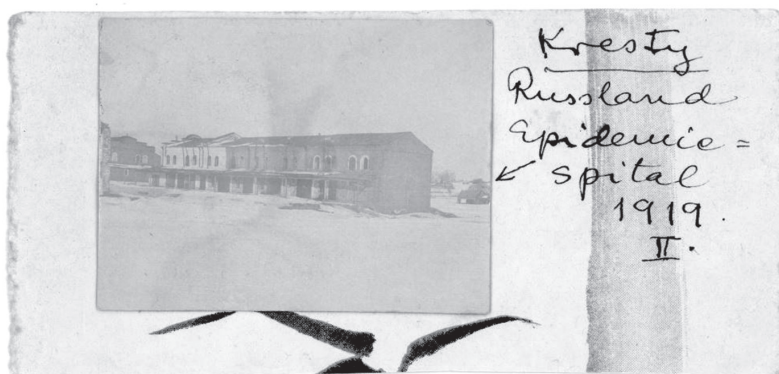 Kresty
Russland
Epidemie=
spital
1919.
II.